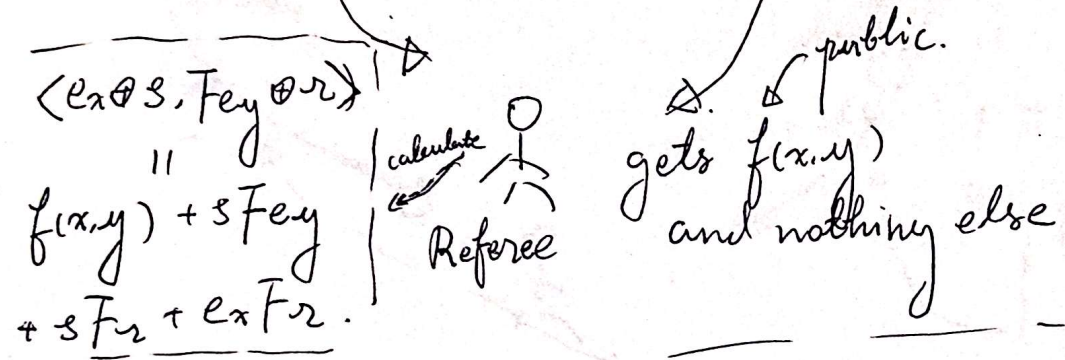 ⟨eₓ⊕s, Fe_y⊕r⟩
||
f(x,y) + sFe_y
+ sFr + eₓFr.
calculate
Referee
public.
gets f(x,y)
and nothing else